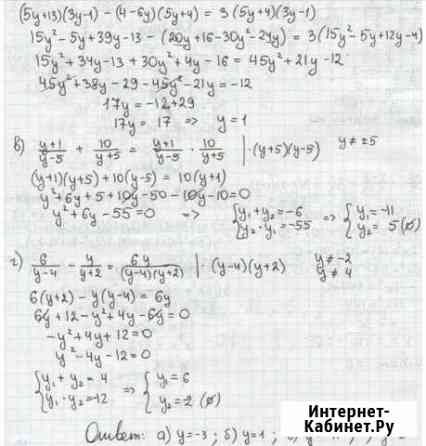 (5y+13)(3y-1) - (4-6y)(5y+4) = 3(5y+4)(3y-1)
15y² - 5y + 39y - 13 - (20y + 16 - 30y² - 24y) = 3(15y² - 5y + 12y - 4)
15y² + 34y - 13 + 30y² + 4y - 16 = 45y² + 21y - 12
45y² + 38y - 29 - 45y² - 21y = -12
17y = -12 + 29
17y = 17 => y = 1
в) (y+1)/(y-5) + 10/(y+5) = (y+1)/(y-5) · 10/(y+5) | · (y+5)(y-5) y ≠ ±5
(y+1)(y+5) + 10(y-5) = 10(y+1)
y² + 6y + 5 + 10y - 50 - 10y - 10 = 0
y² + 6y - 55 = 0 => { y₁ + y₂ = -6 => { y₁ = -11
y₂ · y₁ = -55 y₂ = 5 (ø)
г) 6/(y-4) - y/(y+2) = 6y/((y-4)(y+2)) | · (y-4)(y+2) y ≠ -2
y ≠ 4
6(y+2) - y(y-4) = 6y
6y + 12 - y² + 4y - 6y = 0
-y² + 4y + 12 = 0
y² - 4y - 12 = 0
{ y₁ + y₂ = 4 => { y₁ = 6
y₁ · y₂ = -12 y₂ = 2 (ø)
Ответ: а) y = -3; б) y = 1;
Интернет-
Кабинет.Ру